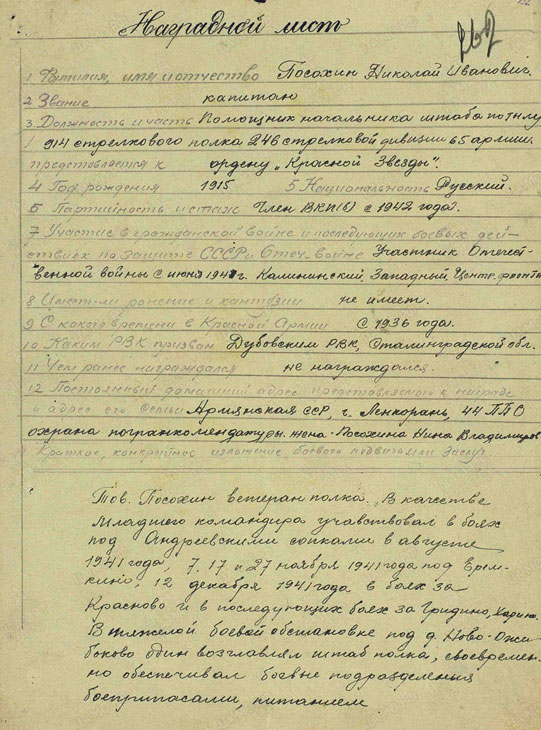 Наградной лист
1 Фамилия, имя и отчество Посохин Николай Иванович.
2 Звание капитан
3 Должность и часть Помощник начальника штаба по тылу
914 стрелкового полка 246 стрелковой дивизии 65 армии
представляется к ордену „Красной Звезды".
4 Год рождения 1915 5 Национальность Русский.
6 Партийность и стаж Член ВКП(б) с 1942 года.
7 Участие в гражданской войне и последующих боевых дей-
ствиях по защите СССР и Отеч. войне Участник Отечест-
венной войны с июня 1941г. Калининский, Западный, Центр. фронты
8 Имеет ли ранение и контузии не имеет.
9 С какого времени в Красной Армии с 1936 года.
10 Каким РВК призван Дубовским РВК, Сталинградской обл.
11 Чем ранее награждался не награждался.
12 Постоянный домашний адрес представляемого к награде
и адрес его семьи Армянская ССР, г. Ленкорань, 44 ППО
охрана погранкомендатуры. жена - Посохина Нина Владимиров
Краткое, конкретное изложение боевого подвига или заслуг
Тов. Посохин ветеран полка. В качестве
младшего командира учавствовал в боях
под Андреевскими сопками в августе
1941 года, 7, 17 и 27 ноября 1941 года под Ерем-
кино, 12 декабря 1941 года в боях за
Красново и в последующих боях за Гридино, Харино.
В тяжелой боевой обстановке под д. Ново-Ожи-
боково один возглавлял штаб полка, своевремен-
но обеспечивал боевые подразделения
боеприпасами, питанием